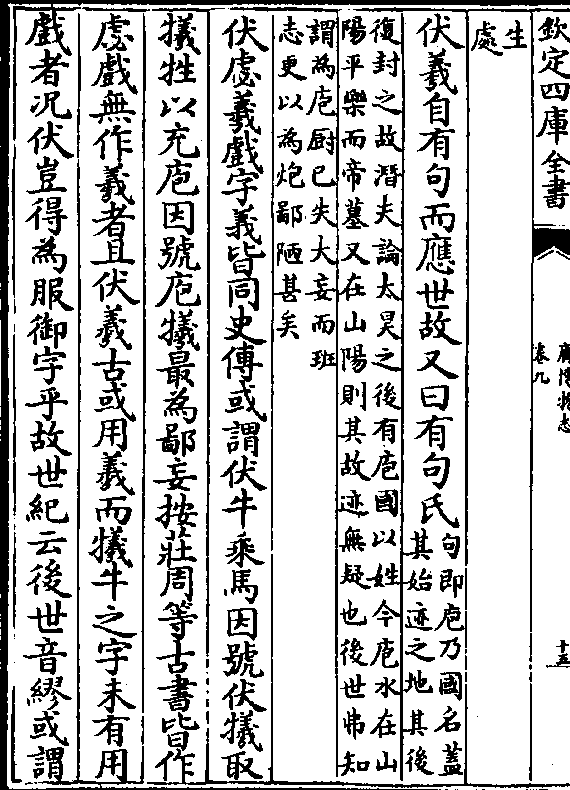 欽定四庫全書
廣博物志
卷九
十五
生
處
伏羲自有句而應世故又曰有句氏
句即庖乃國名蓋
其始迹之地其後
復封之故潛夫論太昊之後有庖國以姓今庖水在山
陽平樂而帝墓又在山陽則其故迹無疑也後世弗知
謂為庖厨已失大妄而班
志更以為炮鄙陋甚矣
伏虙羲戲字義皆同史傳或謂伏牛乘馬因號伏犧取
犧牲以充庖因號庖犧最為鄙妄按莊周等古書皆作
虙戲無作羲者且伏羲古或用羲而犧牛之字未有用
戲者况伏豈得為服御字乎故世紀云後世音繆或謂